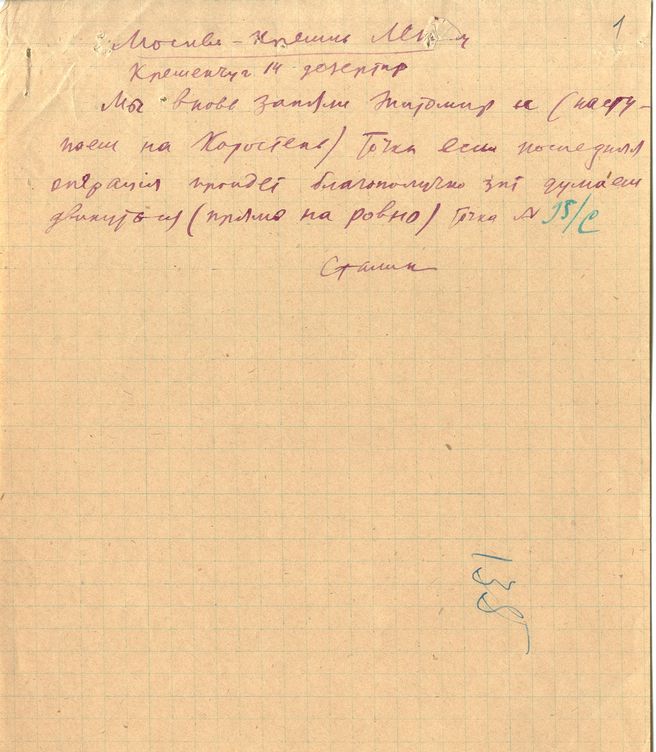 1
Москва - Кремль
Кременчуг 14 дезертир
Мы вновь заняли Житомир и (насту-
паем на Коростень) Точка если последняя
операція пройдет благополучно зпт думаем
двинуться (прямо на ровно) Точка № 15/с
Сталин
138